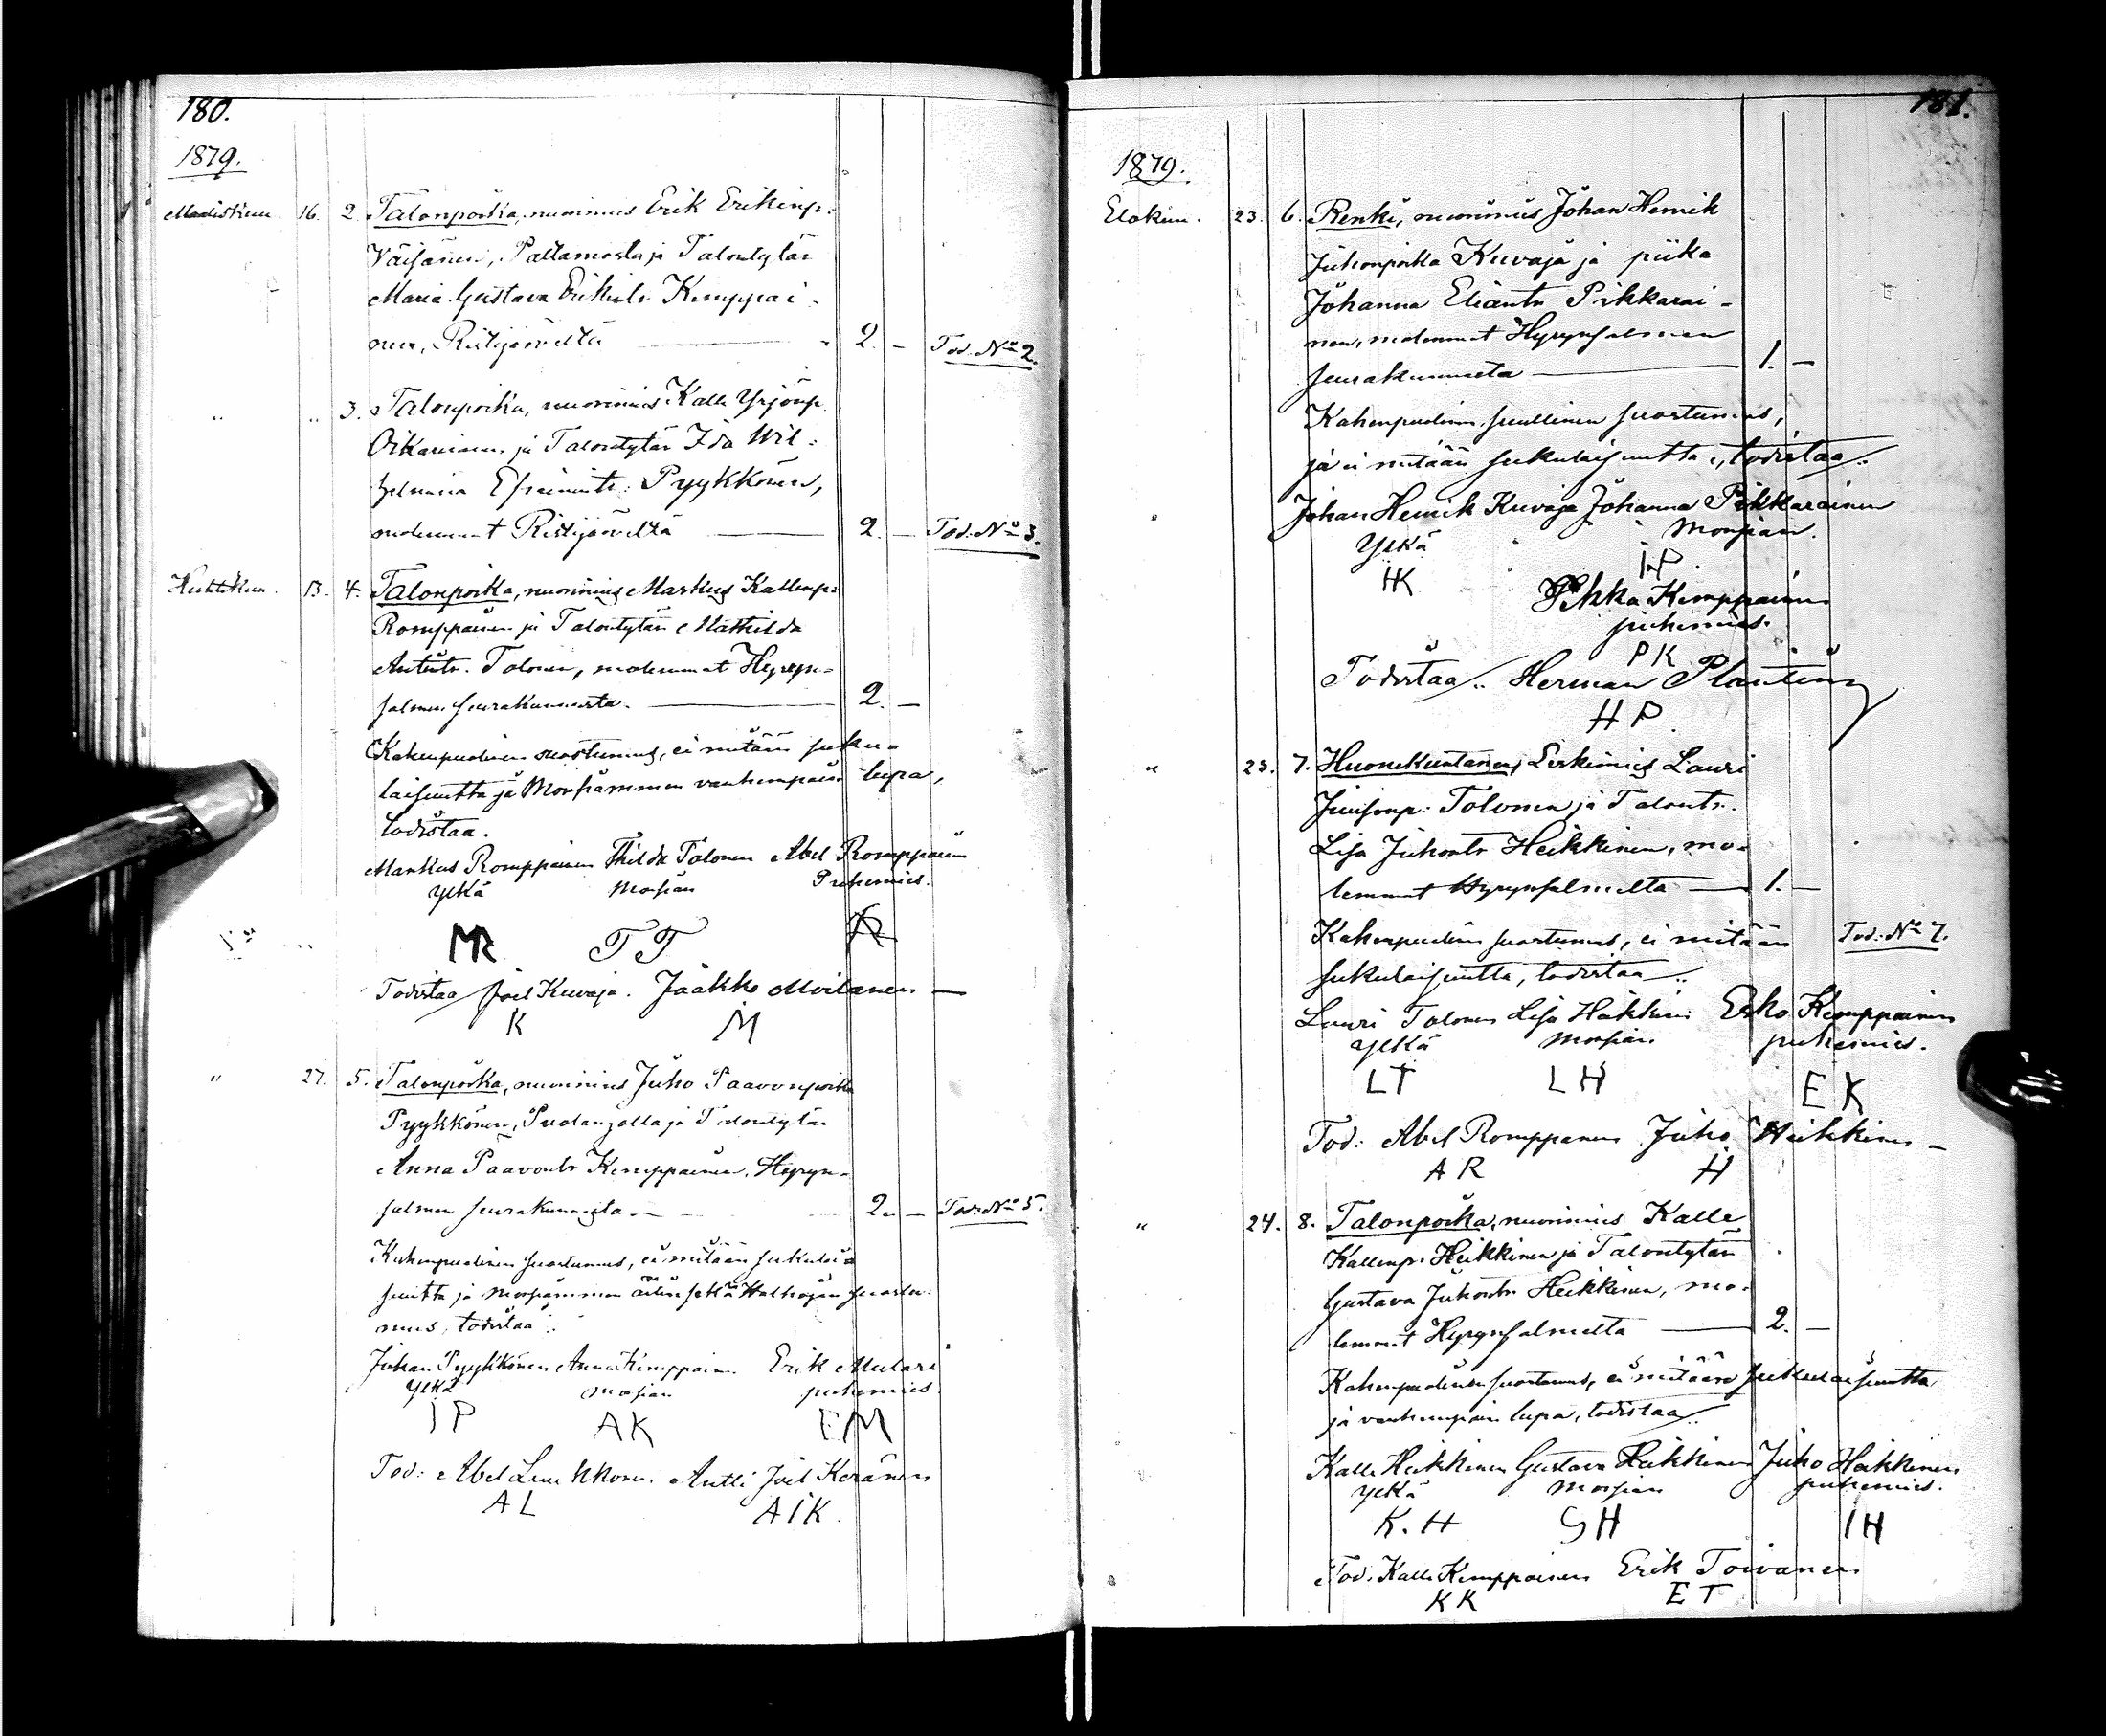 180.
1879.
Maaliskuu. 16. 2. Talonpoika, nuorimies Erik Erikinp.
Väisänen, Paltamosta ja Talontytär
Maria Gustava Erikintr Kemppai-
nen, Ristijärveltä 2. — Tod. No 2.
" " 3. Talonpoika, nuorimies Kalle Yrjönp.
Oikarinen ja Talontytär Ida Wil-
helmina Efraimintr. Pyykkönen,
molemmat Ristijärveltä 2. — Tod. No 3.
Huhtikuu. 13. 4. Talonpoika, nuorimies Markus Kallenp:
Romppainen ja Talontytär Mathilda
Antintr. Tolonen, molemmat Hyryn-
salmen seurakunnasta. 2. —
Kahenpuolinen suostumus, ei mitään suku-
laisuutta ja Morsiammen vanhempain lupa,
todistaa.
Markus Romppainen Thilda Tolonen Abel Romppainen
Ylkä Morsian Puhemies.
MR TT AR
Todistaa Joel Kuvaja. Jaakko Moilanen —
K M
" 27. 5. Talonpoika, nuorimies Juho Paavonpoika
Pyykkönen, Puolangalta ja Talontytär
Anna Paavontr Kemppainen, Hyryn-
salmen seurakunnasta. — 2. — Tod. No 5.
Kahenpuolinen suostumus, ei mitään sukulai-
suutta ja morsiammen äitin sekä Holhojan suostu-
mus, todistaa:
Juhan Pyykkönen Anna Kemppain. Erik Mulari
Ylkä morsian puhemies
IP AK EM
Tod: Abel Leu kkonen. Antti Joel Keränen
AL AIK.
181.
1879.
Elokuu. 23. 6. Renki, nuorimies Johan Henrik
Juhonpoika Kuvaja ja piika
Johanna Eliantr Pikkarai-
nen, molemmat Hyrynsalmen
seurakunnasta 1. —
Kahenpuolinen suullinen suostumus,
ja ei mitään sukulaisuutta, todistaa:
Johan Henrik Kuvaja Johanna Pikkarainen
Ylkä Morsian.
HK IP.
Pekka Kemppainen
puhemies.
PK
Todistaa: Herman Planting
HP.
" 23. 7. Huonekuntainen, Leskimies Lauri
Juusonp: Tolonen ja Talontr.
Lisa Juhontr Heikkinen, mo-
lemmat Hyrynsalmelta 1. —
Kahenpuolinen suostumus, ei mitään Tod. No 7.
sukulaisuutta, todistaa:
Lauri Tolonen Lisa Heikkinen Esko Kemppainen
Ylkä Morsian puhemies.
LT LH EK
Tod: Abel Romppanen Juho Heikkinen —
AR H
" 24. 8. Talonpoika, nuorimies Kalle
Kallenp. Heikkinen ja Talontytär
Gustava Juhontr Heikkinen, mo-
lemmat Hyrynsalmelta 2. —
Kahenpuolinen suostumus, ei mitään sukulaisuutta
ja vanhempain lupa, todistaa:
Kalle Heikkinen Gustava Heikkinen Juho Heikkinen
Ylkä Morsian puhemies.
K.H GH IH
Tod. Kalle Kemppainen Erik Toivanen
KK ET